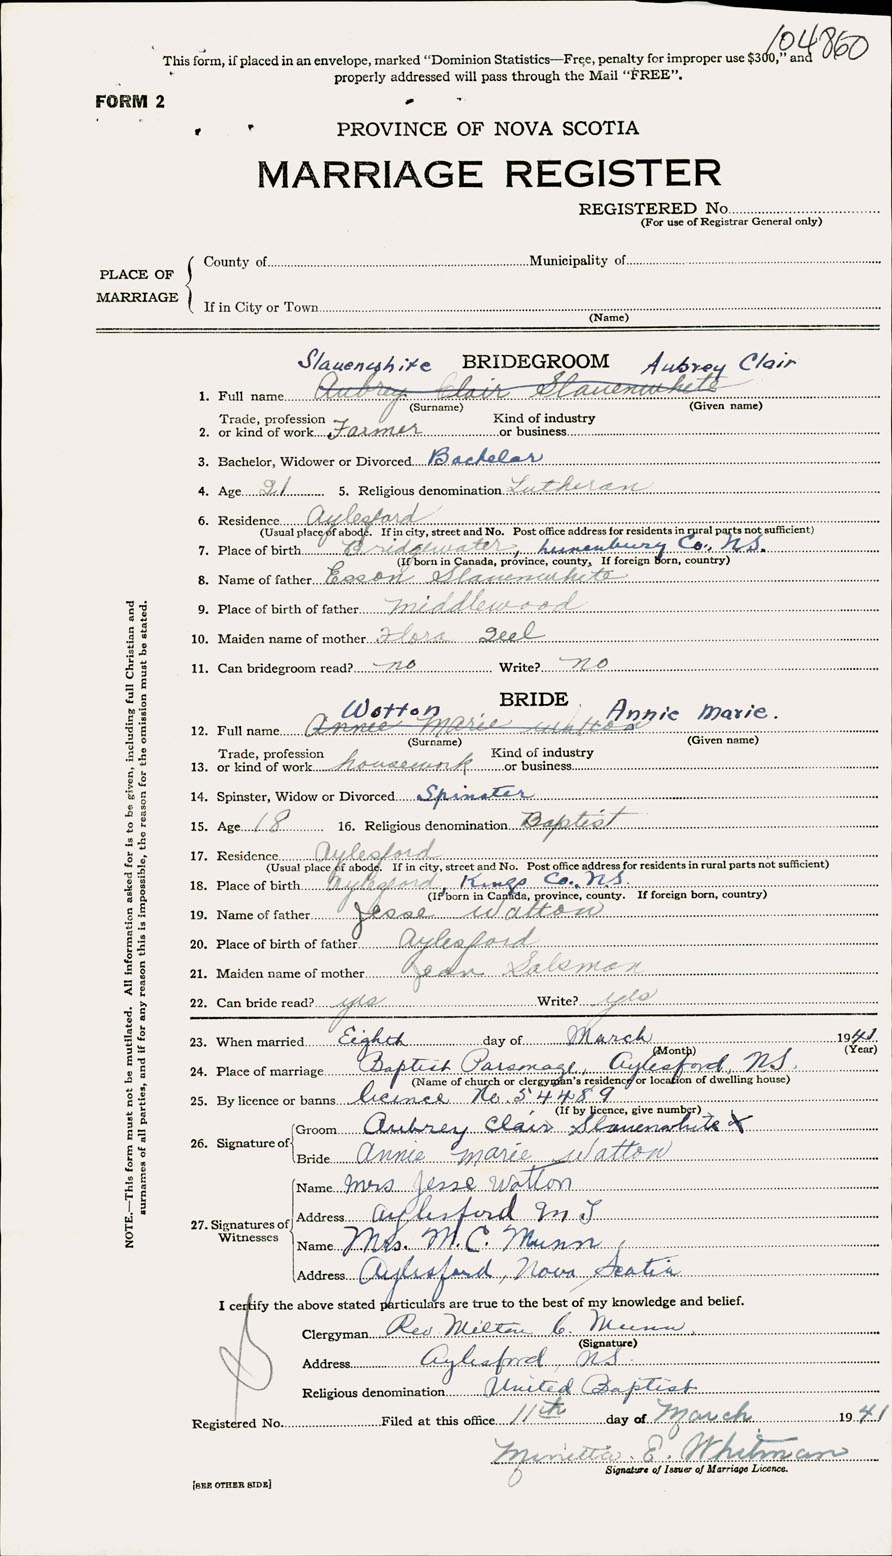 104860
This form, if placed in an envelope, marked "Dominion Statistics—Free, penalty for improper use $300," and
properly addressed will pass through the Mail "FREE".
FORM 2
PROVINCE OF NOVA SCOTIA
MARRIAGE REGISTER
REGISTERED No.
(For use of Registrar General only)
PLACE OF MARRIAGE
County of Municipality of
If in City or Town
(Name)
Slauenwhite BRIDEGROOM Aubrey Clair
1. Full name Aubrey Clair Slauenwhite
(Surname) (Given name)
2. Trade, profession or kind of work Farmer Kind of industry or business
3. Bachelor, Widower or Divorced Bachelor
4. Age 21 5. Religious denomination Lutheran
6. Residence Aylesford
(Usual place of abode. If in city, street and No. Post office address for residents in rural parts not sufficient)
7. Place of birth Bridgewater, Lunenburg Co., N.S.
(If born in Canada, province, county, If foreign born, country)
8. Name of father Esson Slauenwhite
9. Place of birth of father Middlewood
10. Maiden name of mother Flora Zeel
11. Can bridegroom read? no Write? no
BRIDE
Wotton Annie Marie.
12. Full name Annie Marie Watton
(Surname) (Given name)
13. Trade, profession or kind of work housework Kind of industry or business
14. Spinster, Widow or Divorced Spinster
15. Age 18 16. Religious denomination Baptist
17. Residence Aylesford
(Usual place of abode. If in city, street and No. Post office address for residents in rural parts not sufficient)
18. Place of birth Aylesford, Kings Co., N.S.
(If born in Canada, province, county. If foreign born, country)
19. Name of father Jesse Watton
20. Place of birth of father Aylesford
21. Maiden name of mother Jean Salsman
22. Can bride read? yes Write? yes
23. When married Eighth day of March 1941
(Month) (Year)
24. Place of marriage Baptist Parsonage, Aylesford, N.S.
(Name of church or clergyman's residence or location of dwelling house)
25. By licence or banns licence No. 54489
(If by licence, give number)
26. Signature of Groom Aubrey Clair Slauenwhite X
Bride Annie Marie Watton
27. Signatures of Witnesses
Name Mrs Jesse Watton
Address Aylesford N S
Name Mrs. M. C. Munn
Address Aylesford, Nova Scotia
I certify the above stated particulars are true to the best of my knowledge and belief.
Clergyman Rev Milton C. Munn
(Signature)
Address Aylesford, N.S.
Religious denomination United Baptist
Registered No. Filed at this office 11th day of March 1941
Minetta E. Whitman
Signature of Issuer of Marriage Licence.
[SEE OTHER SIDE]
NOTE.—This form must not be mutilated. All information asked for is to be given, including full Christian and
surnames of all parties, and if for any reason this is impossible, the reason for the omission must be stated.